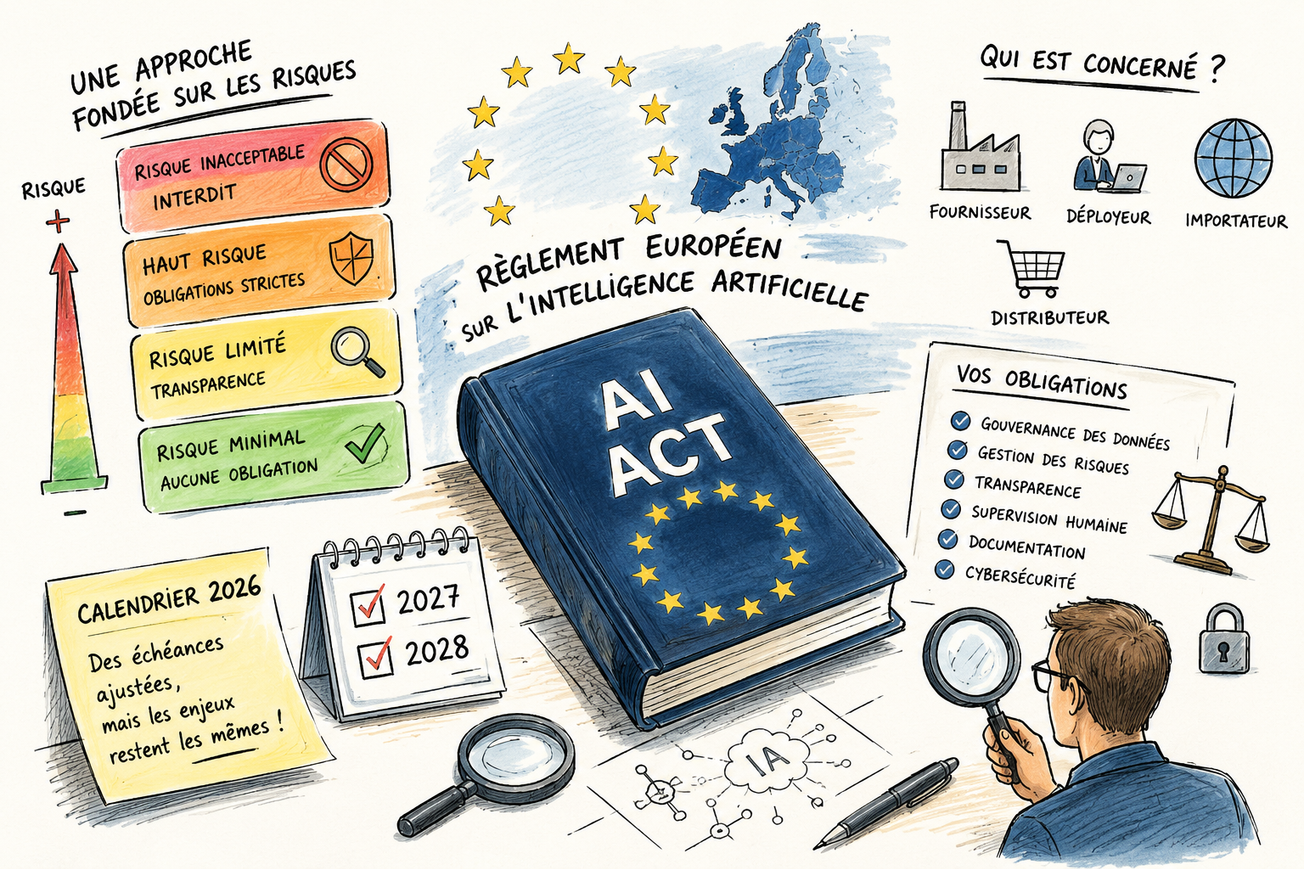 UNE APPROCHE
FONDÉE SUR LES RISQUES
RISQUE
+
RISQUE INACCEPTABLE
INTERDIT
HAUT RISQUE
OBLIGATIONS STRICTES
RISQUE LIMITÉ
TRANSPARENCE
RISQUE MINIMAL
AUCUNE OBLIGATION
-
RÈGLEMENT EUROPÉEN
SUR L'INTELLIGENCE ARTIFICIELLE
AI
ACT
QUI EST CONCERNÉ ?
FOURNISSEUR
DÉPLOYEUR
IMPORTATEUR
DISTRIBUTEUR
VOS OBLIGATIONS
GOUVERNANCE DES DONNÉES
GESTION DES RISQUES
TRANSPARENCE
SUPERVISION HUMAINE
DOCUMENTATION
CYBERSÉCURITÉ
CALENDRIER 2026
Des échéances
ajustées,
mais les enjeux
restent les mêmes !
2027
2028
IA